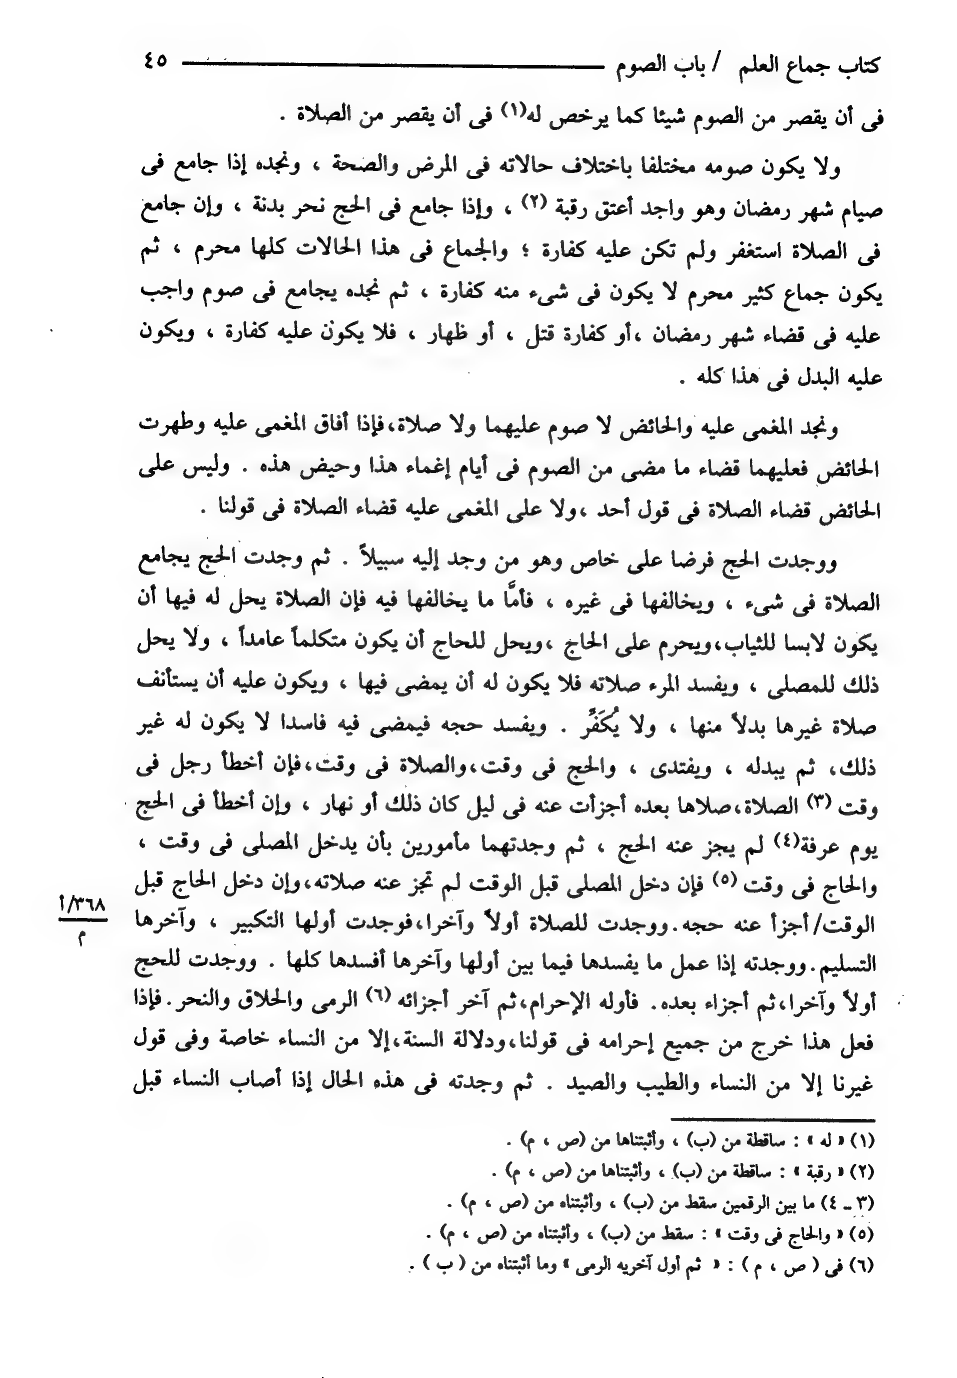 كتاب جماع العلم / باب الصوم ٤٥
فى أن يقصر من الصوم شيئا كما يرخص له(١) فى أن يقصر من الصلاة .
ولا يكون صومه مختلفا باختلاف حالاته فى المرض والصحة ، ونجده إذا جامع فى
صيام شهر رمضان وهو واجد أعتق رقبة (٢) ، وإذا جامع فى الحج نحر بدنة ، وإن جامع
فى الصلاة استغفر ولم تكن عليه كفارة ؛ والجماع فى هذا الحالات كلها محرم ، ثم
يكون جماع كثير محرم لا يكون فى شىء منه كفارة ، ثم نجده يجامع فى صوم واجب
عليه فى قضاء شهر رمضان ،أو كفارة قتل ، أو ظهار ، فلا يكون عليه كفارة ، ويكون
عليه البدل فى هذا كله .
ونجد المغمى عليه والحائض لا صوم عليهما ولا صلاة،فإذا أفاق المغمى عليه وطهرت
الحائض فعليهما قضاء ما مضى من الصوم فى أيام إغماء هذا وحيض هذه . وليس على
الحائض قضاء الصلاة فى قول أحد ،ولا على المغمى عليه قضاء الصلاة فى قولنا .
ووجدت الحج فرضا على خاص وهو من وجد إليه سبيلاً . ثم وجدت الحج يجامع
الصلاة فى شىء ، ويخالفها فى غيره ، فأمَّا ما يخالفها فيه فإن الصلاة يحل له فيها أن
يكون لابسا للثياب،ويحرم على الحاج ،ويحل للحاج أن يكون متكلماً عامداً ، ولا يحل
ذلك للمصلى ، ويفسد المرء صلاته فلا يكون له أن يمضى فيها ، ويكون عليه أن يستأنف
صلاة غيرها بدلاً منها ، ولا يُكَفِّر . ويفسد حجه فيمضى فيه فاسدا لا يكون له غير
ذلك، ثم يبدله ، ويفتدى ، والحج فى وقت،والصلاة فى وقت،فإن أخطأ رجل فى
وقت (٣) الصلاة،صلاها بعده أجزأت عنه فى ليل كان ذلك أو نهار ، وإن أخطأ فى الحج
يوم عرفة(٤) لم يجز عنه الحج ، ثم وجدتهما مأمورين بأن يدخل المصلى فى وقت ،
والحاج فى وقت (٥) فإن دخل المصلى قبل الوقت لم تجز عنه صلاته،وإن دخل الحاج قبل
٣٦٨/أ
م
الوقت/ أجزأ عنه حجه.ووجدت للصلاة أولاً وآخرا،فوجدت أولها التكبير ، وآخرها
التسليم.ووجدته إذا عمل ما يفسدها فيما بين أولها وآخرها أفسدها كلها . ووجدت للحج
أولاً وآخرا،ثم أجزاء بعده. فأوله الإحرام،ثم آخر أجزائه (٦) الرمى والحلاق والنحر.فإذا
فعل هذا خرج من جميع إحرامه فى قولنا،ودلالة السنة،إلا من النساء خاصة وفى قول
غيرنا إلا من النساء والطيب والصيد . ثم وجدته فى هذه الحال إذا أصاب النساء قبل
(١) « له » : ساقطة من (ب) ، وأثبتناها من (ص ، م) .
(٢) « رقبة » : ساقطة من (ب) ، وأثبتناها من (ص ، م) .
(٣ ـ ٤) ما بين الرقمين سقط من (ب) ، وأثبتناه من (ص ، م) .
(٥) « والحاج فى وقت » : سقط من (ب) ، وأثبتناه من (ص ، م) .
(٦) فى ( ص ، م ) : « ثم أول آخريه الرمى » وما أثبتناه من ( ب ) .